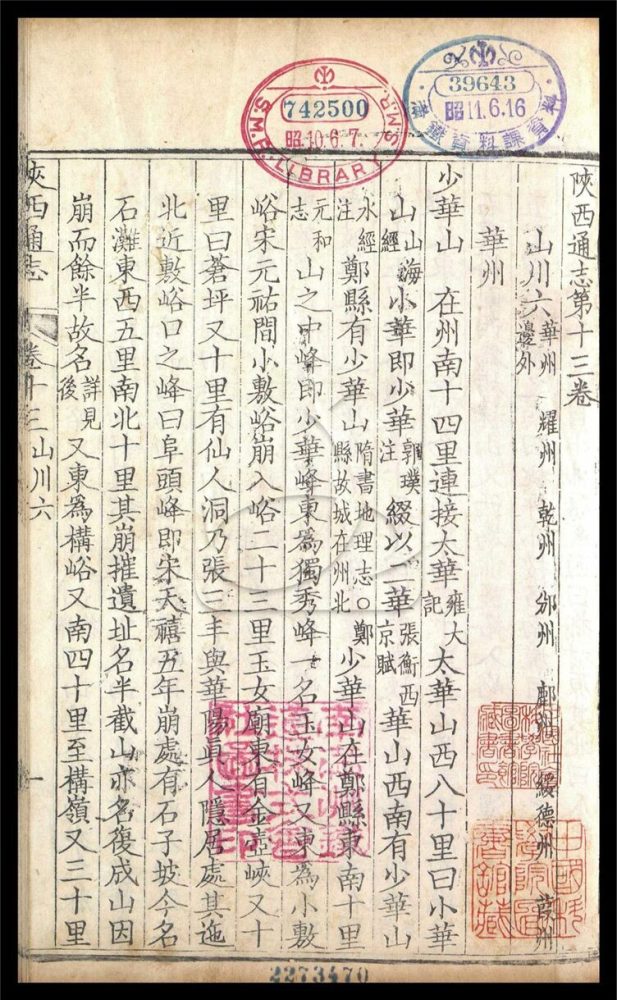 742500
昭10.6.7.
S.M.R. LIBRARY S.M.R.
39643
昭11.6.16
陝西通志第十三卷
山川六 華州 耀州 乾州 邠州 鄜州 綏德州 葭州 邊外
華州
少華山 在州南十四里連接太華雍大記 太華山西八十里曰小華
山山海經 小華即少華郭璞注 綴以二華張衡西京賦 華山西南有少華山
水經注 鄭縣有少華山隋書地理志○鄭縣故城在州北 少華山在鄭縣東南十里
元和志 山之中峰即少華峰東為獨秀峰一名玉女峰又東為小敷
峪宋元祐間小敷峪崩入峪二十三里玉女廟東有金壺峽又十
里曰蒼坪又十里有仙人洞乃張三丰與華陽真人隱居處其迤
北近敷峪口之峰曰阜頭峰即宋天禧五年崩處有石子坡今名
石灘東西五里南北十里其崩摧遺址名半截山亦名復成山因
崩而餘半故名詳見後 又東為構峪又南四十里至構嶺又三十里
陝西通志 卷十三 山川六 一
2273470